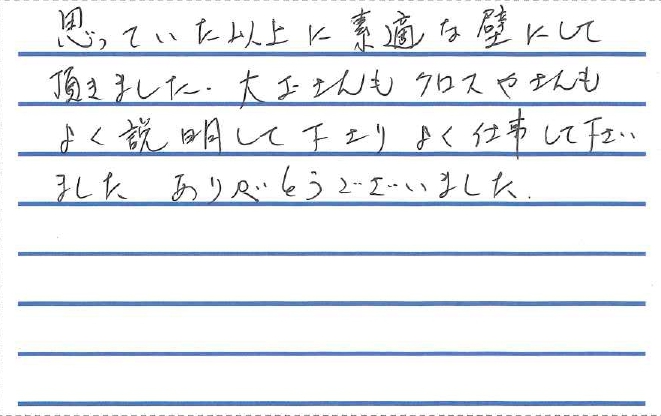 思っていた以上に素適な壁にして
頂きました。大工さんもクロスやさんも
よく説明して下さりよく仕事して下さい
ました ありがとうございました.